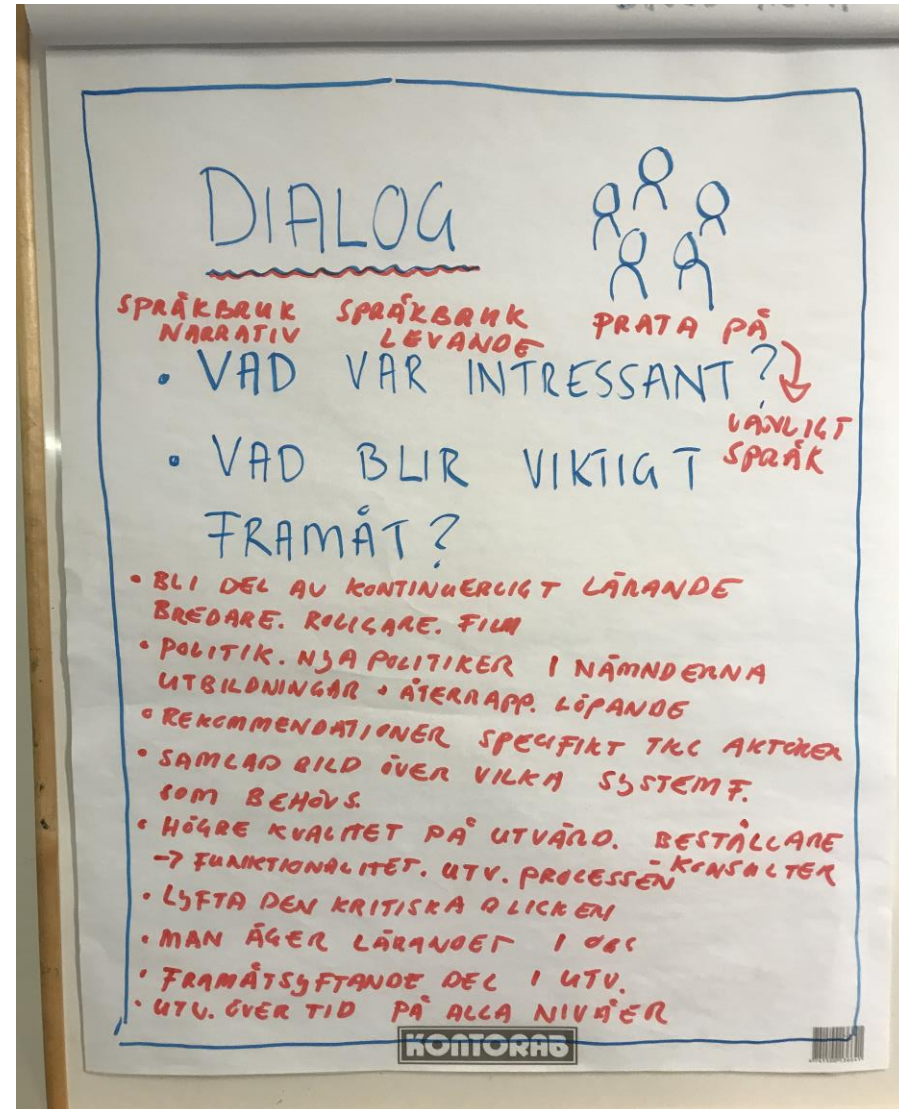 DIALOG
SPRÅKBRUK SPRÅKBRUK PRATA PÅ
NARRATIV LEVANDE
• VAD VAR INTRESSANT?
VANLIGT
SPRÅK
• VAD BLIR VIKTIGT
FRAMÅT?
• BLI DEL AV KONTINUERLIGT LÄRANDE
BREDARE. ROLIGARE. FILM
• POLITIK. NYA POLITIKER I NÄMNDERNA
UTBILDNINGAR • ÅTERRAPP. LÖPANDE
• REKOMMENDATIONER SPECIFIKT TILL AKTÖRER
• SAMLAD BILD ÖVER VILKA SYSTEMF.
SOM BEHÖVS.
• HÖGRE KVALITET PÅ UTVÄRD. BESTÄLLARE
→ FUNKTIONALITET. UTV. PROCESSEN - KONSULTER
• LYFTA DEN KRITISKA BLICKEN
• MAN ÄGER LÄRANDET I ORG
• FRAMÅTSYFTANDE DEL I UTV.
• UTV. ÖVER TID PÅ ALLA NIVÅER
KONTORAB